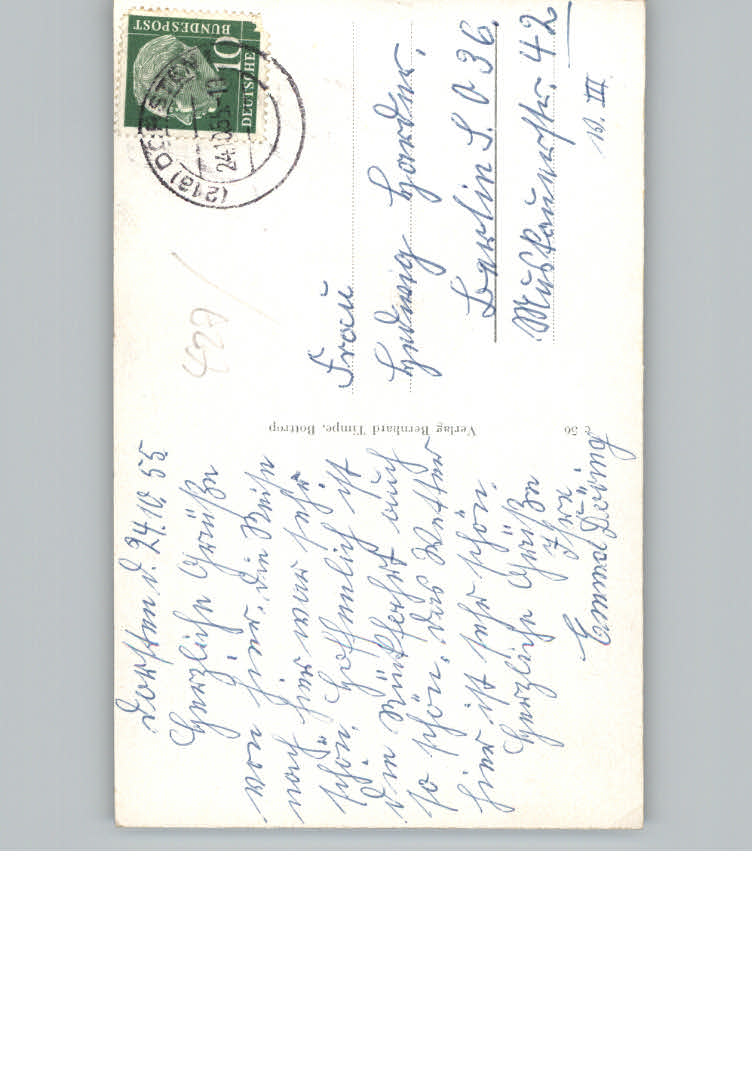 Dorsten d. 24.10.55
Herzliche Grüße
von hier. Die Reise
nach hier war sehr
schön. Hoffenlich ist
die Rückfahrt auch
so schön. Das Wetter
hier ist sehr schön.
Herzliche Grüße
Ihre
Emma Döring
Verlag Bernhard Timpe, Bottrop
56
Frau
Hedwig Harder,
Berlin S.O 36.
Muskauerstr. 42
III
427
DEUTSCHE
BUNDESPOST
10
(21a) DORSTEN
24.10.55